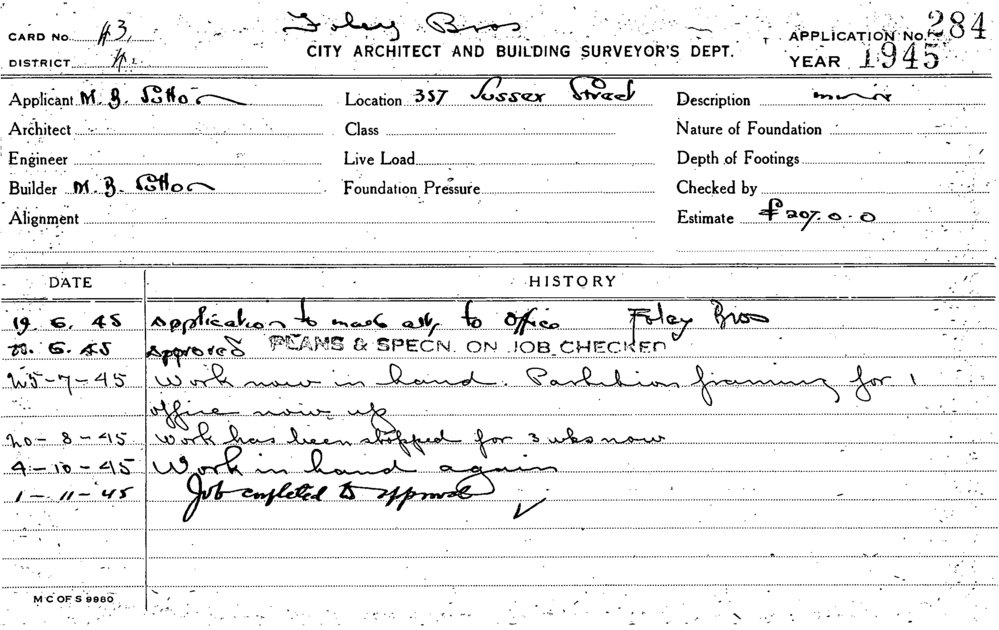 Foley Bros
CARD No. #3.
CITY ARCHITECT AND BUILDING SURVEYOR'S DEPT.
APPLICATION No. 284
DISTRICT
YEAR 1945
Applicant M. B. Sutton
Location 357 Sussex Street
Description minor
Architect
Class
Nature of Foundation
Engineer
Live Load
Depth of Footings
Builder M. B. Sutton
Foundation Pressure
Checked by
Alignment
Estimate £207.0.0
DATE HISTORY
19. 6. 45 Application to make alts to office Foley Bros
6. 45 Approved PLANS & SPECN. ON JOB CHECKED
25-7-45 Work now in hand. Partition framing for 1
office now up
20-8-45 Work has been stopped for 3 wks now
4-10-45 Work in hand again
1-11-45 Job completed to approval ✓
M C OF S 9980